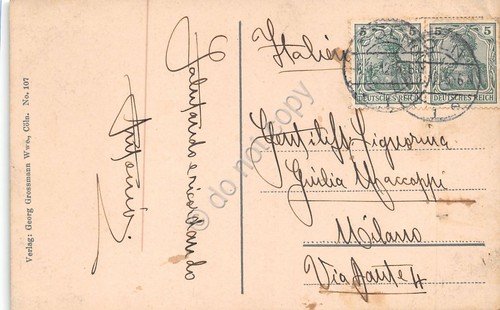 Verlag: Georg Grossmann Wwe., Cöln. No. 107
Salutando e ricordando
Antonio.
Italien
5 5
DEUTSCHES REICH
5 5
DEUTSCHES REICH
Gentiliss Signorina
Giulia Maccoppi
Milano
Via Dante 4
do not copy